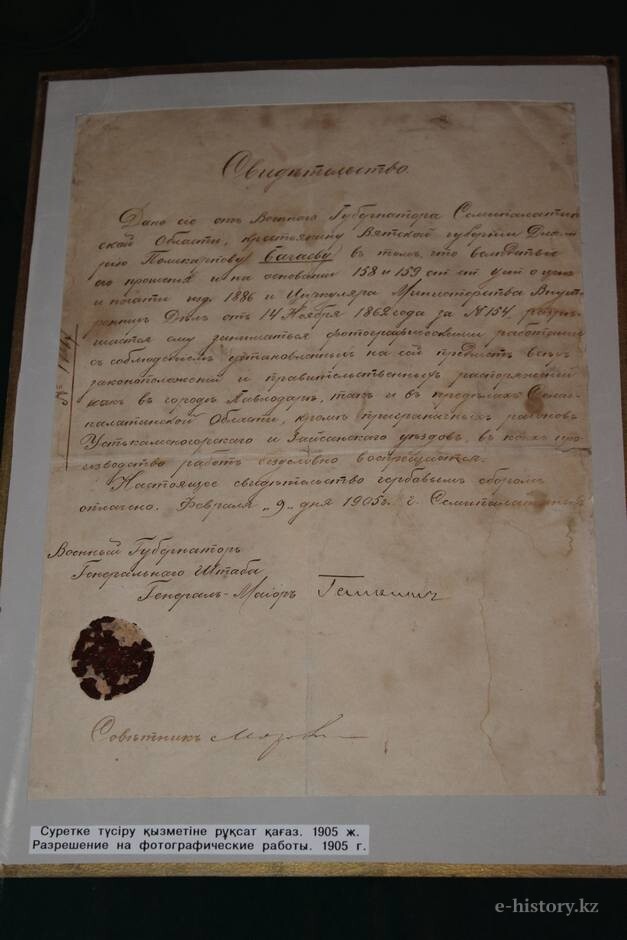 Свидѣтельство.
Дано сіе отъ Военнаго Губернатора Семипалатин
ской Области, крестьянину Вятской губерніи Дми
рію Поликарпову Багаеву въ томъ, что вслѣдствіе
его прошенія и на основаніи 158 и 159 ст. ст. уст. о ценз
и печати изд. 1886 и Циркуляра Министерства Внут
реннихъ Дѣлъ отъ 14 Ноября 1862 года за № 154, разрѣ
шается ему заниматься фотографическими работами
съ соблюденіемъ установленныхъ на сей предметъ всѣхъ
законоположеній и правительственныхъ распоряженій
какъ въ городѣ Павлодарѣ, такъ и въ предѣлахъ Семи
палатинской Области, кромѣ приграничныхъ районовъ
Устькаменогорскаго и Зайсанскаго уѣздовъ, въ коихъ про
изводство работъ безусловно воспрещается.
Настоящее свидѣтельство гербовымъ сборомъ
оплачено. Февраля „9„ дня 1905 г. г. Семипалатинскъ
№
Военный Губернаторъ
Генеральнаго Штаба
Генералъ-Маіоръ
Совѣтникъ
Суретке түсіру қызметіне рұқсат қағаз. 1905 ж.
Разрешение на фотографические работы. 1905 г.
e-history.kz